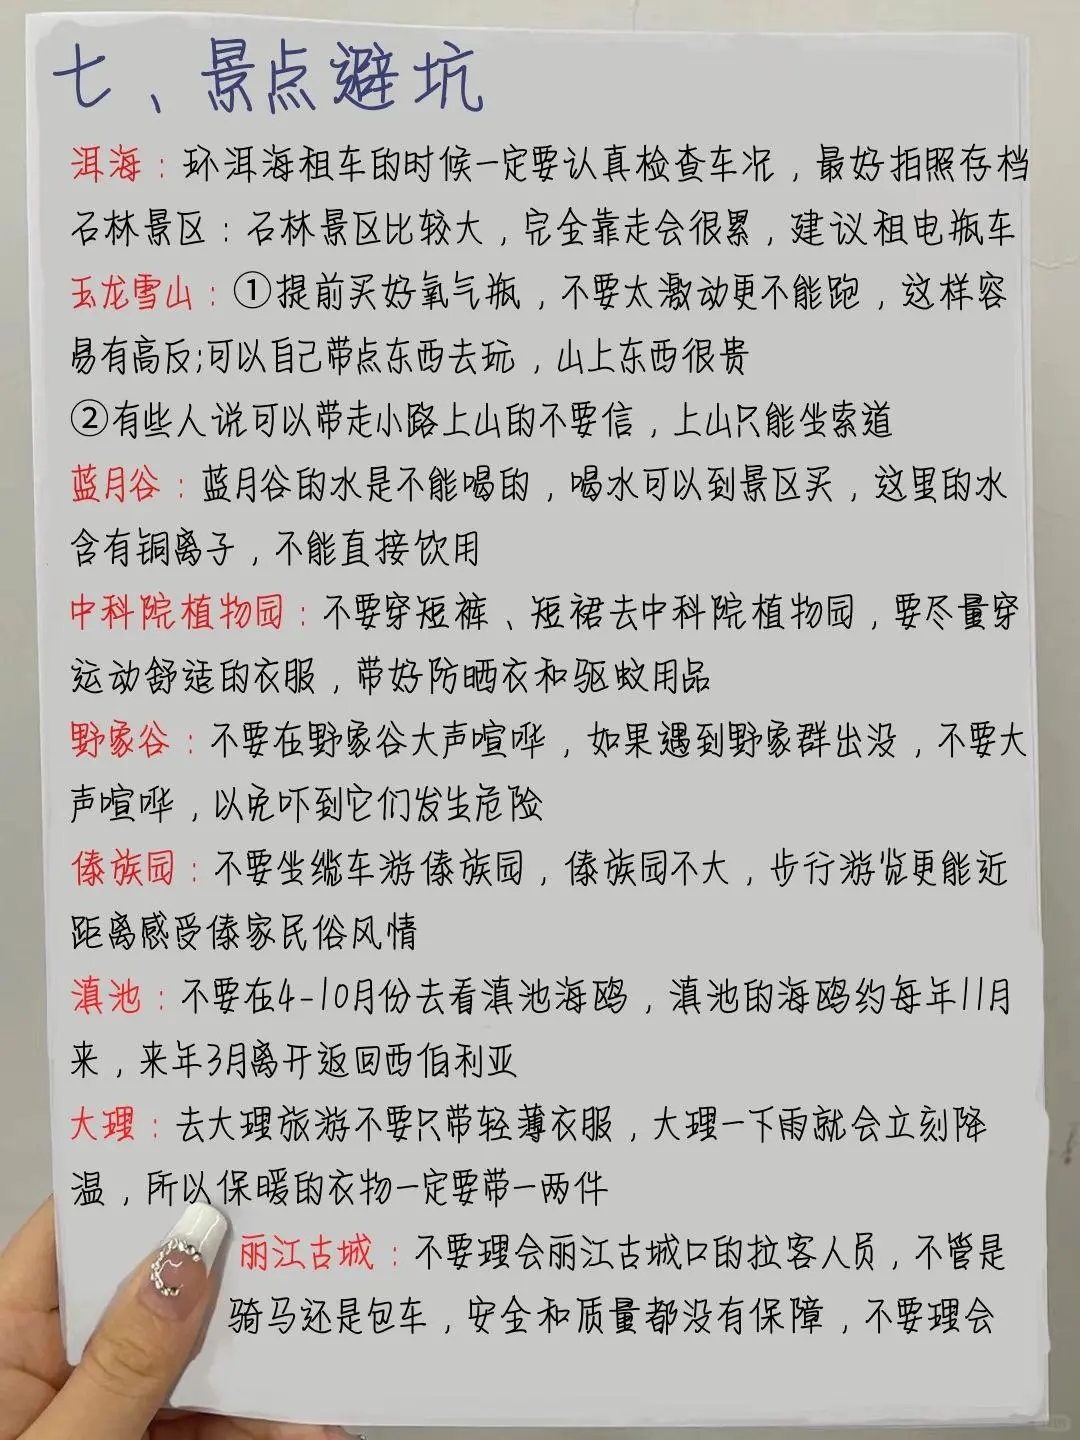 七、景点避坑
洱海：环洱海租车的时候一定要认真检查车况，最好拍照存档
石林景区：石林景区比较大，完全靠走会很累，建议租电瓶车
玉龙雪山：①提前买好氧气瓶，不要太激动更不能跑，这样容
易有高反;可以自己带点东西去玩，山上东西很贵
②有些人说可以带走小路上山的不要信，上山只能坐索道
蓝月谷：蓝月谷的水是不能喝的，喝水可以到景区买，这里的水
含有铜离子，不能直接饮用
中科院植物园：不要穿短裤、短裙去中科院植物园，要尽量穿
运动舒适的衣服，带好防晒衣和驱蚊用品
野象谷：不要在野象谷大声喧哗，如果遇到野象群出没，不要大
声喧哗，以免吓到它们发生危险
傣族园：不要坐缆车游傣族园，傣族园不大，步行游览更能近
距离感受傣家民俗风情
滇池：不要在4-10月份去看滇池海鸥，滇池的海鸥约每年11月
来，来年3月离开返回西伯利亚
大理：去大理旅游不要只带轻薄衣服，大理一下雨就会立刻降
温，所以保暖的衣物一定要带一两件
丽江古城：不要理会丽江古城口的拉客人员，不管是
骑马还是包车，安全和质量都没有保障，不要理会